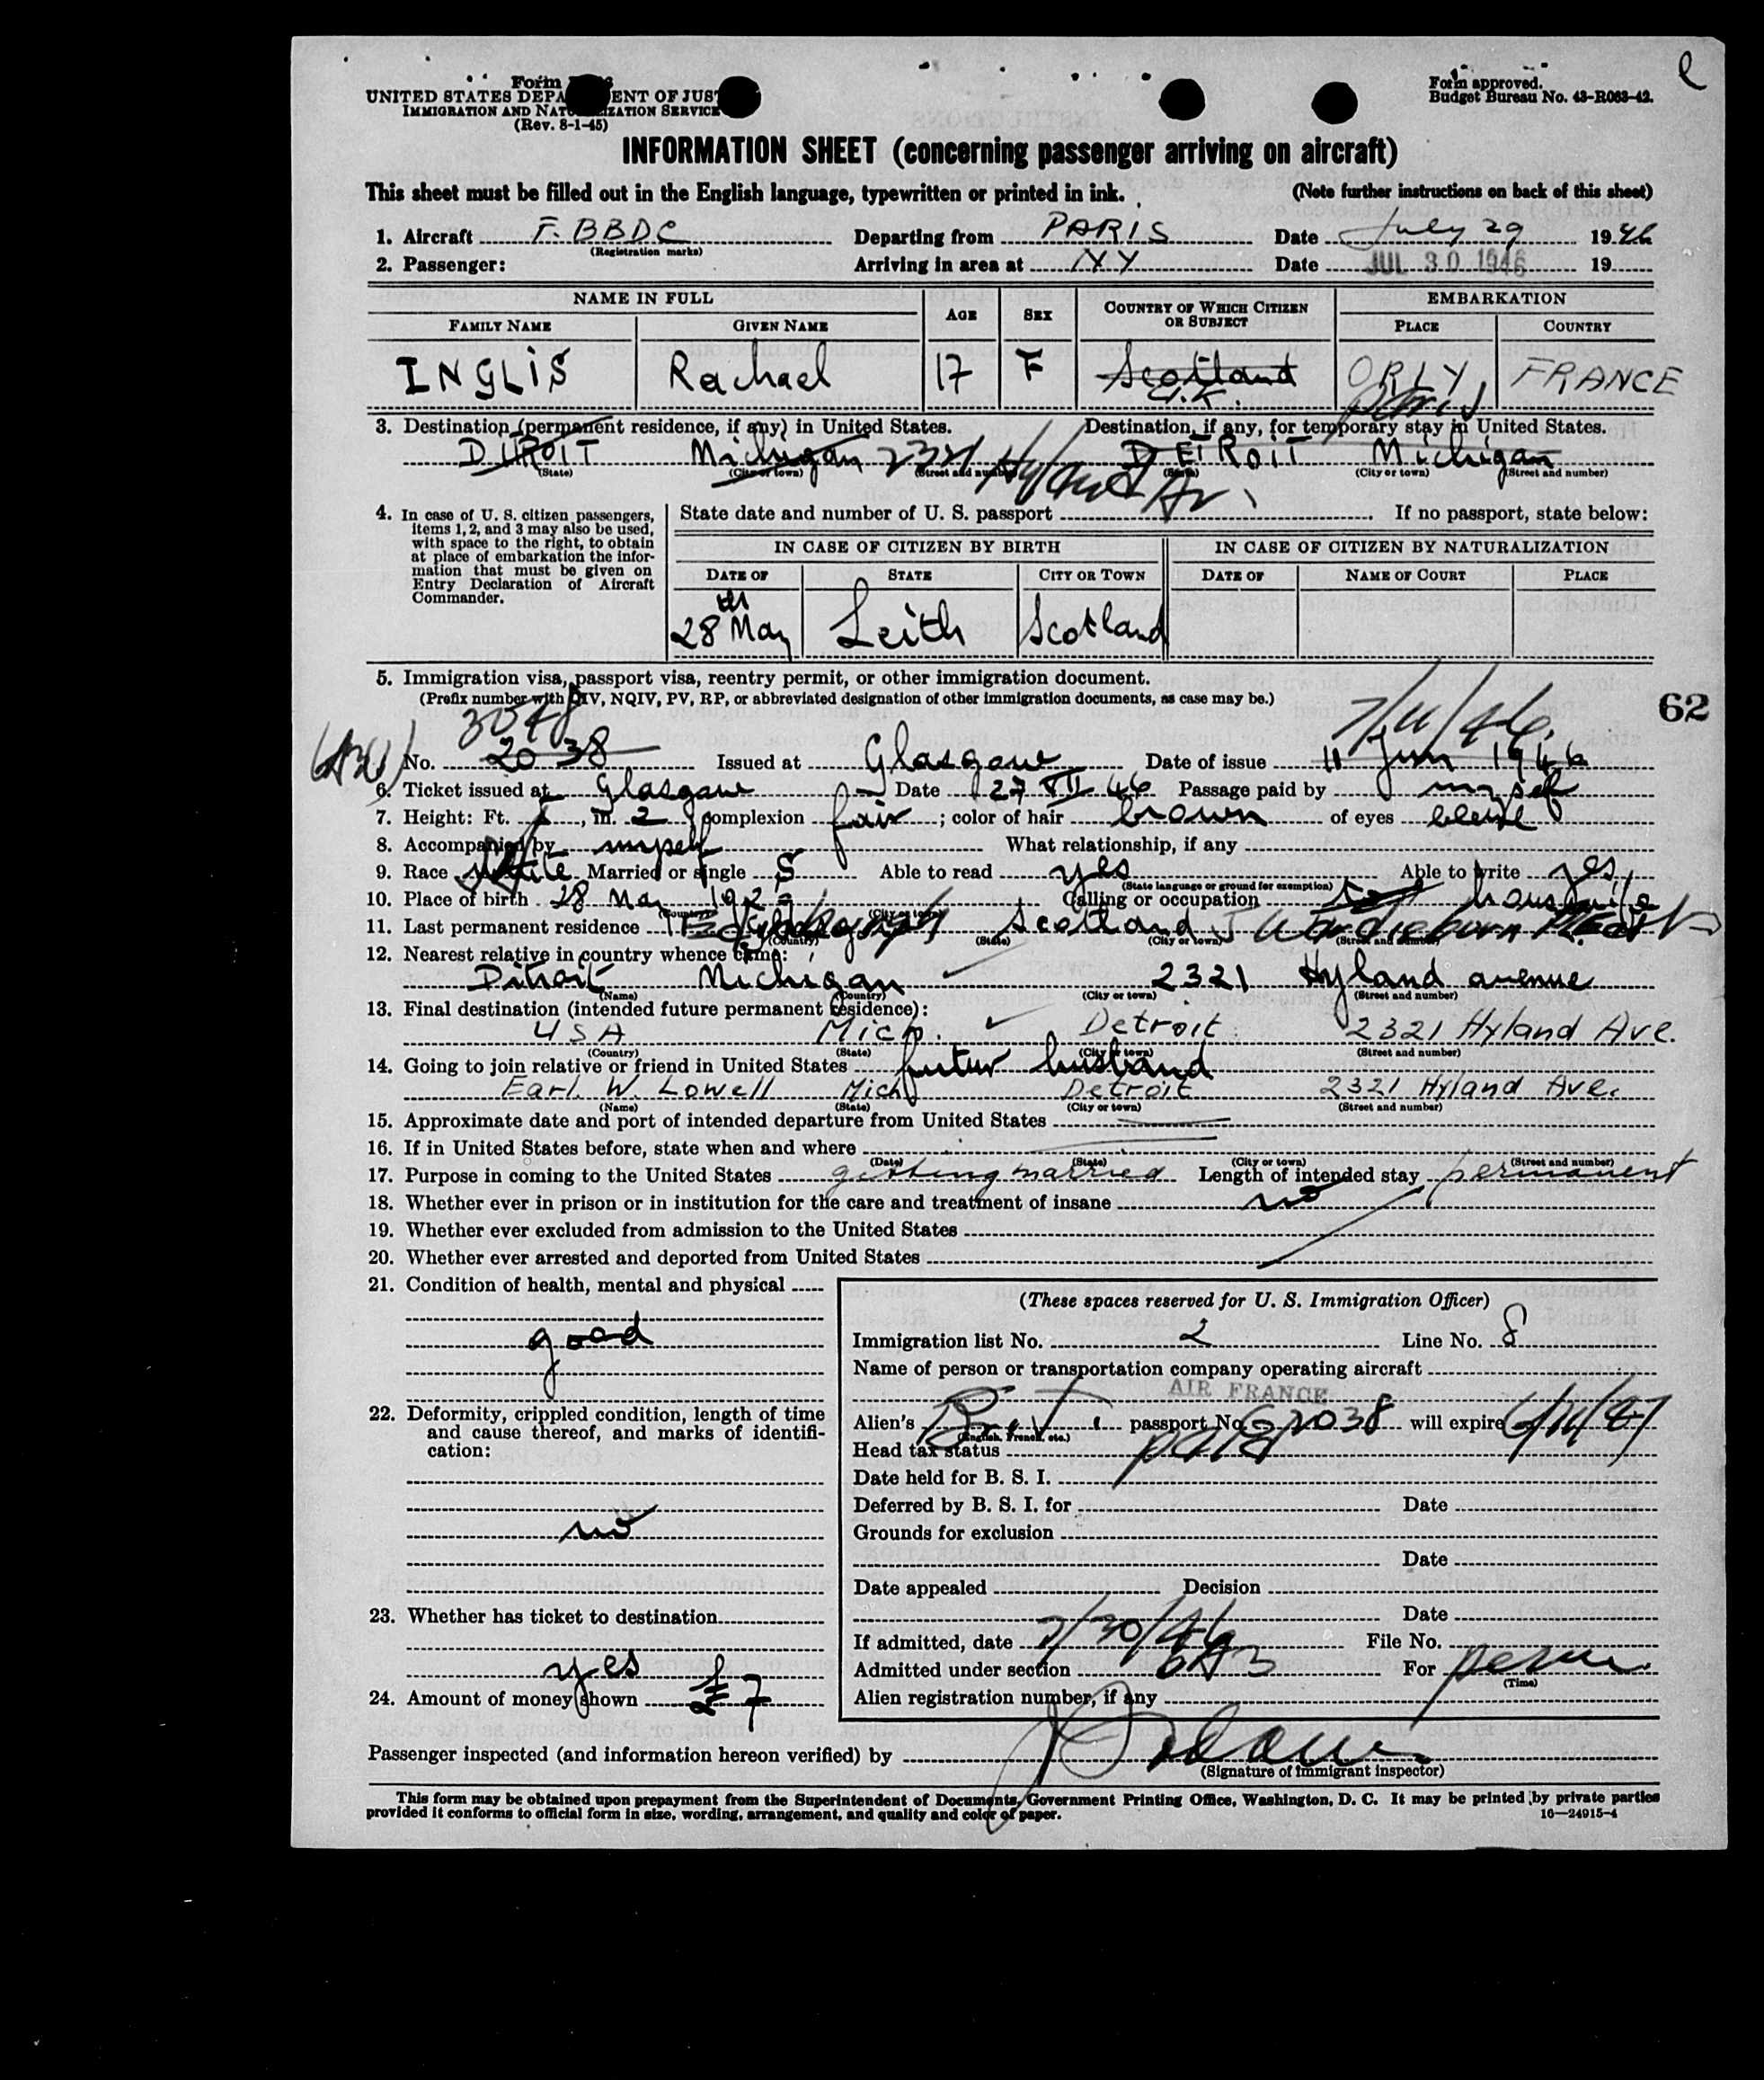 Form
UNITED STATES DEPA ENT OF JUS
IMMIGRATION AND NAT IZATION SERVICE
(Rev. 8-1-45)
Form approved.
Budget Bureau No. 43-R063-42.
INFORMATION SHEET (concerning passenger arriving on aircraft)
This sheet must be filled out in the English language, typewritten or printed in ink. (Note further instructions on back of this sheet)
1. Aircraft F. BBDC Departing from PARIS Date July 29 1946
(Registration marks)
2. Passenger: Arriving in area at NY Date JUL 30 1946 19
NAME IN FULL AGE SEX COUNTRY OF WHICH CITIZEN OR SUBJECT EMBARKATION
FAMILY NAME GIVEN NAME PLACE COUNTRY
INGLIS Rachael 17 F Scotland ORLY, FRANCE
U.K. Paris
3. Destination (permanent residence, if any) in United States. Destination, if any, for temporary stay in United States.
DITROIT Michigan 2321 Hyland Av. DETROIT Michigan
(State) (City or town) (Street and number) (State) (City or town) (Street and number)
4. In case of U. S. citizen passengers, items 1, 2, and 3 may also be used, with space to the right, to obtain at place of embarkation the information that must be given on Entry Declaration of Aircraft Commander.
State date and number of U. S. passport If no passport, state below:
IN CASE OF CITIZEN BY BIRTH IN CASE OF CITIZEN BY NATURALIZATION
DATE OF STATE CITY OR TOWN DATE OF NAME OF COURT PLACE
28th May Leith Scotland
5. Immigration visa, passport visa, reentry permit, or other immigration document.
(Prefix number with QIV, NQIV, PV, RP, or abbreviated designation of other immigration documents, as case may be.)
62
3048
No. 2038 Issued at Glasgow Date of issue 11 Jun 1946
6. Ticket issued at Glasgow Date 27 VII 46 Passage paid by myself
7. Height: Ft. 5, in. 2 complexion fair; color of hair brown of eyes
8. Accompanied by myself What relationship, if any
9. Race white Married or single S Able to read yes Able to write yes
(State language or ground for exemption)
10. Place of birth 28 May Calling or occupation housewife
(Country) (City or town)
11. Last permanent residence Scotland
(Country) (State) (City or town) (Street and number)
12. Nearest relative in country whence came:
Ditroit Michigan 2321 Hyland avenue
(Name) (Country) (City or town) (Street and number)
13. Final destination (intended future permanent residence):
USA Mich. Detroit 2321 Hyland Ave.
(Country) (State) (City or town) (Street and number)
14. Going to join relative or friend in United States futur husband
Earl. W. Lowell Mich Detroit 2321 Hyland Ave.
(Name) (State) (City or town) (Street and number)
15. Approximate date and port of intended departure from United States
16. If in United States before, state when and where
(Date) (State) (City or town) (Street and number)
17. Purpose in coming to the United States getting married Length of intended stay permanent
18. Whether ever in prison or in institution for the care and treatment of insane no
19. Whether ever excluded from admission to the United States
20. Whether ever arrested and deported from United States
21. Condition of health, mental and physical
good
22. Deformity, crippled condition, length of time and cause thereof, and marks of identification:
no
23. Whether has ticket to destination
yes
24. Amount of money shown £7
(These spaces reserved for U. S. Immigration Officer)
Immigration list No. 2 Line No. 8
Name of person or transportation company operating aircraft
AIR FRANCE
Alien's Brit. passport No. 62038 will expire
(English, French, etc.)
Head tax status paid
Date held for B. S. I.
Deferred by B. S. I. for Date
Grounds for exclusion
Date
Date appealed Decision
Date
If admitted, date 7/30/46 File No.
Admitted under section 6A3 For perm
(Time)
Alien registration number, if any
Passenger inspected (and information hereon verified) by
(Signature of immigrant inspector)
This form may be obtained upon prepayment from the Superintendent of Documents, Government Printing Office, Washington, D. C. It may be printed by private parties
provided it conforms to official form in size, wording, arrangement, and quality and color of paper. 16—24915-4